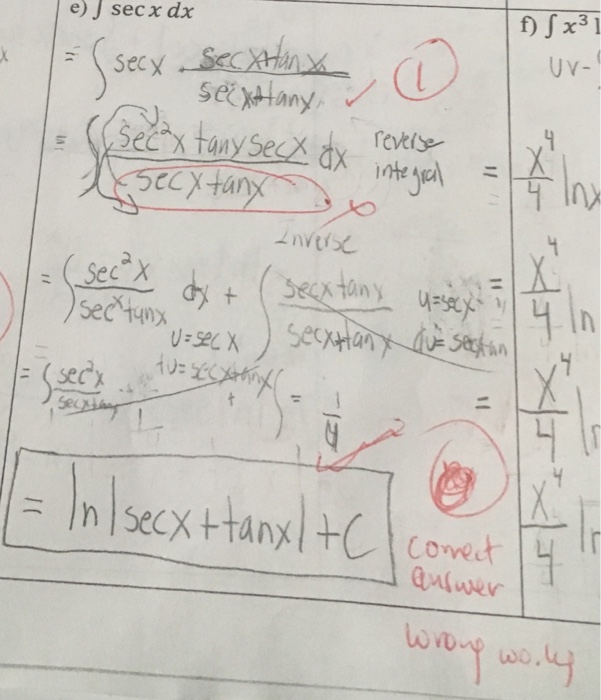 e) ∫ sec x dx
= ∫ secx · secx+tanx / secx+tanx ✓ ①
= ∫ sec²x tanx secx / secx+tanx dx reverse integral
Inverse
= ∫ sec²x / secx+tanx dx + ∫ secx tanx / secx+tanx u=secx
u=secx
= ∫ sec²x / secx+tanx = 1/4
= ln|secx+tanx|+C
correct
answer
wrong
f) ∫ x³
uv-
= x⁴/4 lnx
= x⁴/4 ln
= x⁴/4
x⁴/4